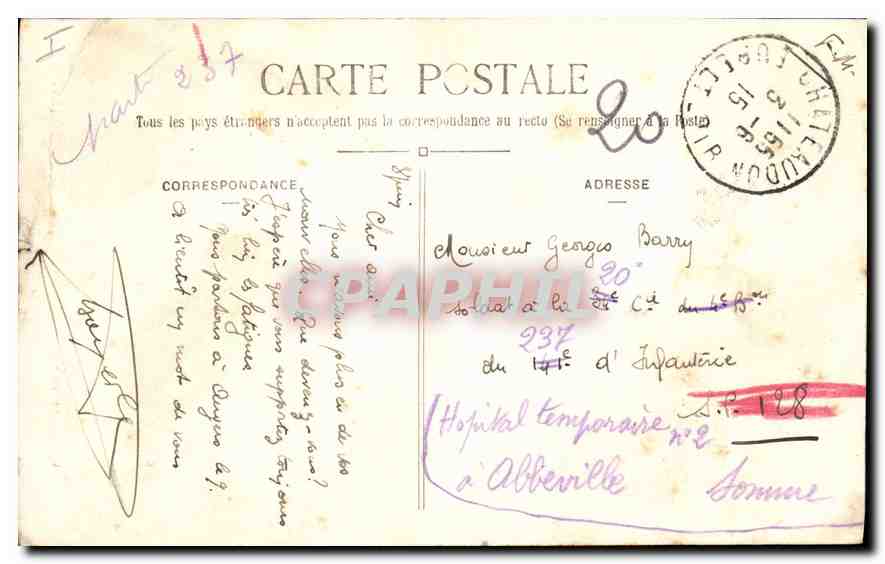 I
237
20
F.M.
CARTE POSTALE
Tous les pays étrangers n'acceptent pas la correspondance au recto (Se renseigner à la Poste)
CORRESPONDANCE
ADRESSE
CHATEAUDUN
EURE-ET-LOIR
8 juin
Cher ami
Nous n'avons plus eu de vos
nouvelles. Que devenez-vous?
J'espère que vous supportez toujours
très bien les fatigues
Nous partons à Angers le 9.
A bientôt un mot de vous
Monsieur Georges Barry
20e
soldat à la Cie du 4e Bon
237
du 141e d'Infanterie
S.P. 128
Hopital temporaire n°2
à Abbeville Somme
CPAPHIL